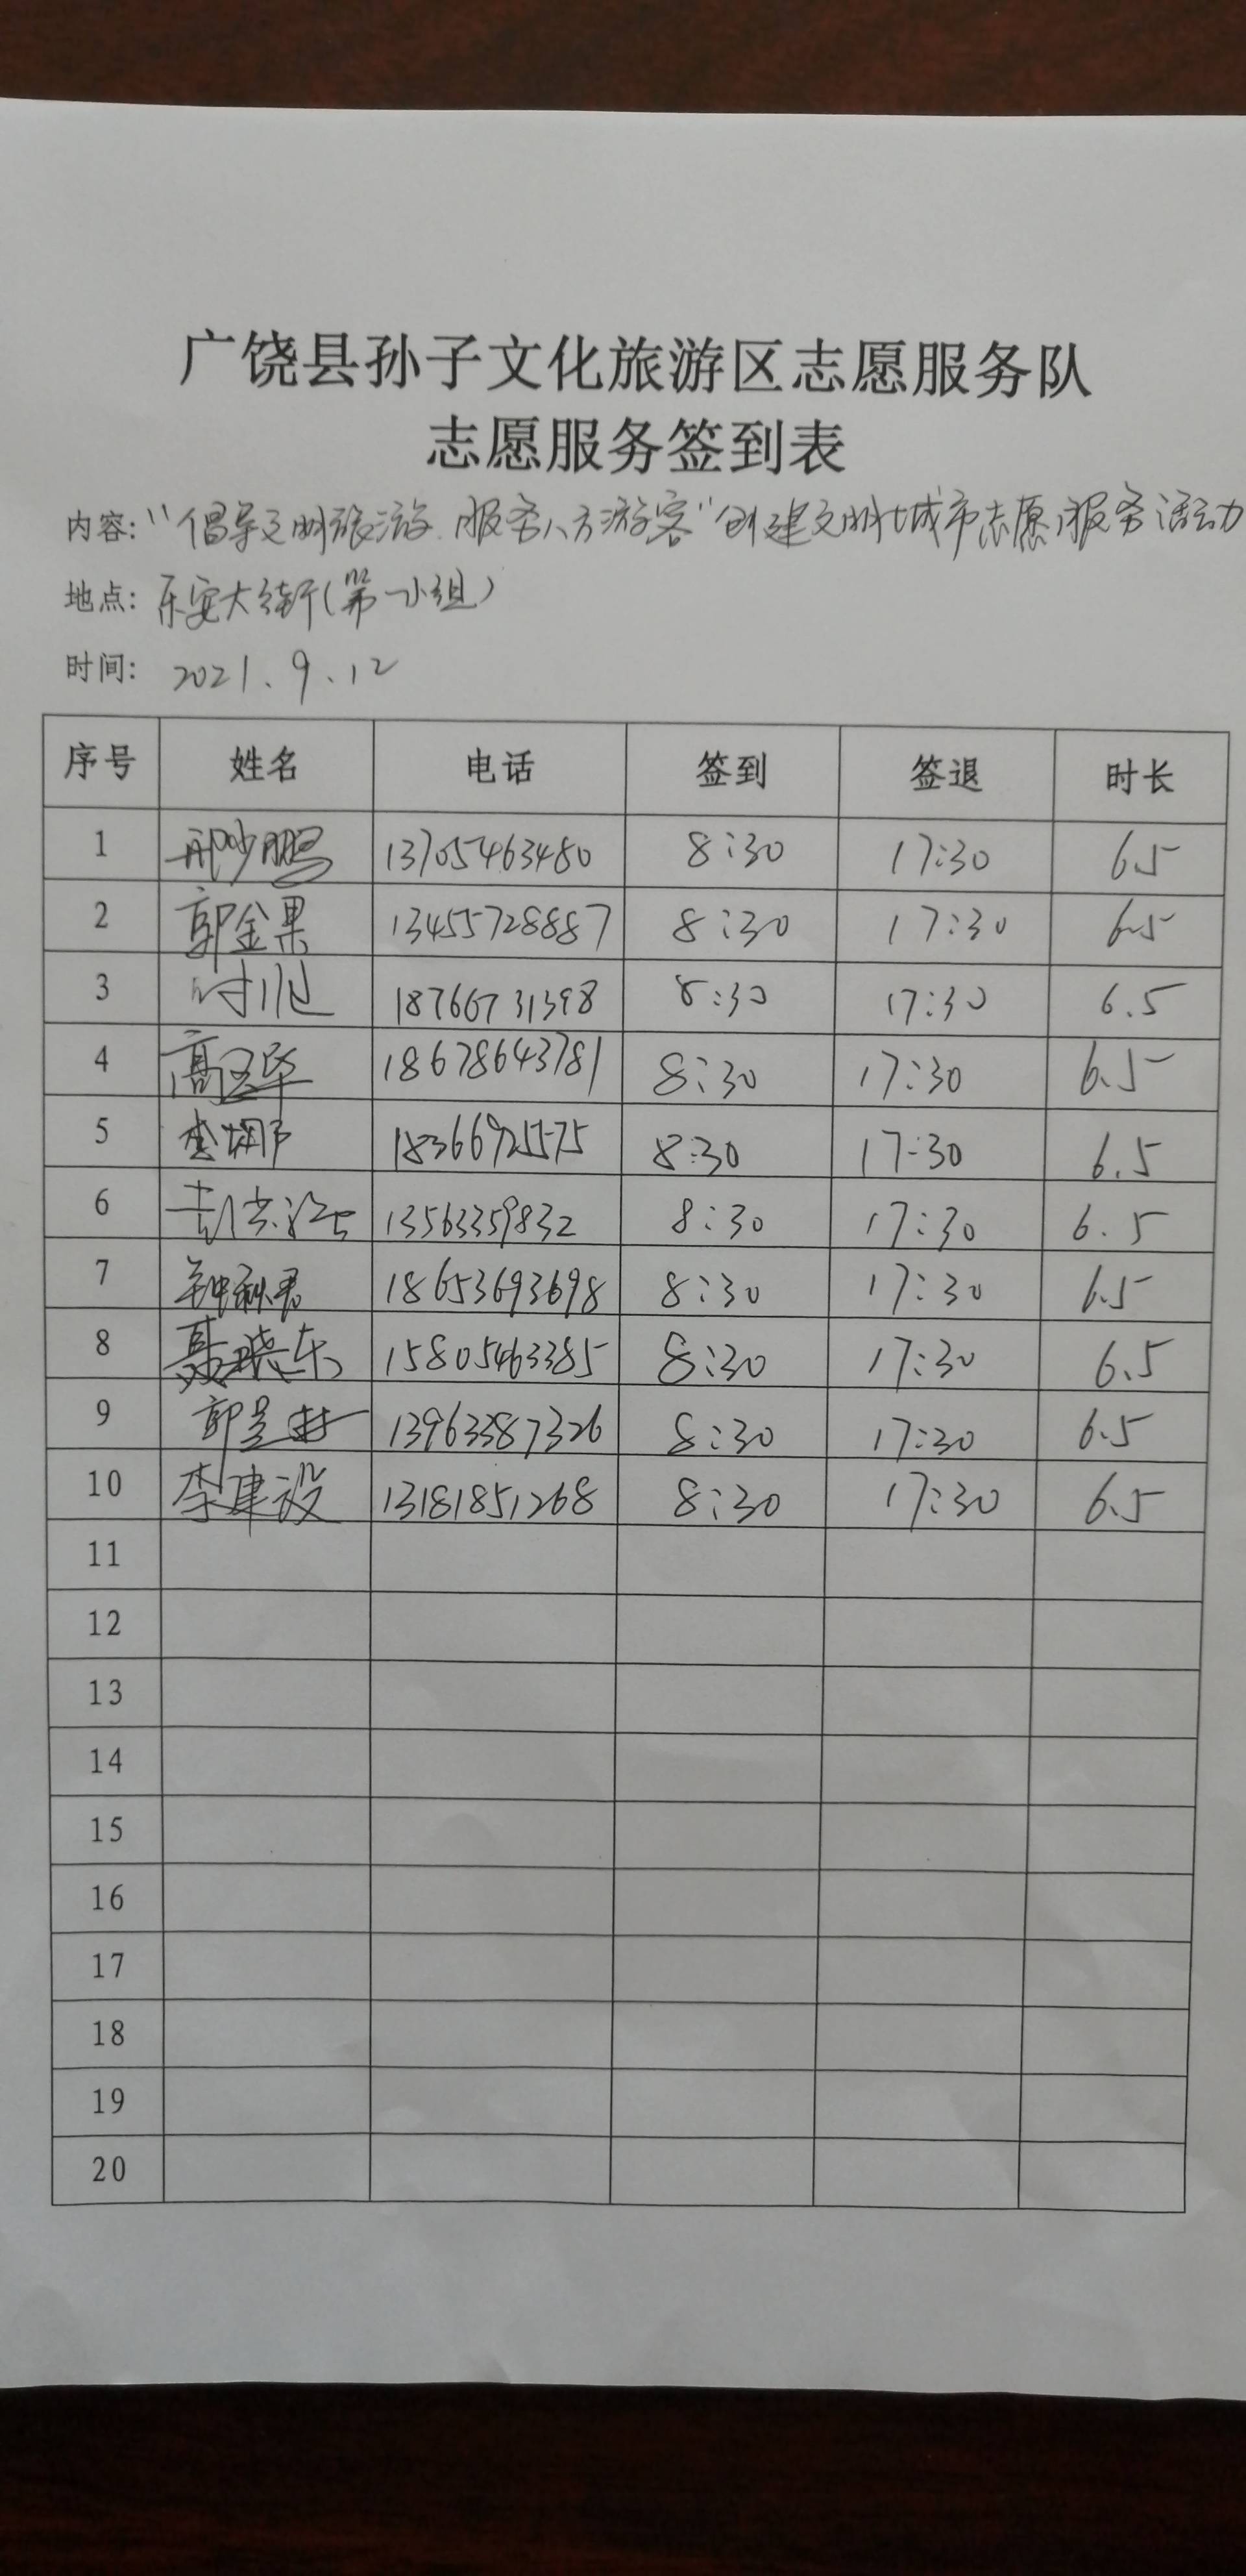 广饶县孙子文化旅游区志愿服务队
志愿服务签到表
内容:“倡导文明旅游 服务八方游客”创建文明城市志愿服务活动
地点: 乐安大街(第一小组)
时间: 2021.9.12
序号 姓名 电话 签到 签退 时长
1 13705463480 8:30 17:30 6.5
2 郭金果 13455728887 8:30 17:30 6.5
3 18766731398 8:30 17:30 6.5
4 18678643781 8:30 17:30 6.5
5 18366925575 8:30 17:30 6.5
6 13563359832 8:30 17:30 6.5
7 18653693698 8:30 17:30 6.5
8 聂晓东 15805463385 8:30 17:30 6.5
9 13963387326 8:30 17:30 6.5
10 李建设 13181851268 8:30 17:30 6.5
11
12
13
14
15
16
17
18
19
20